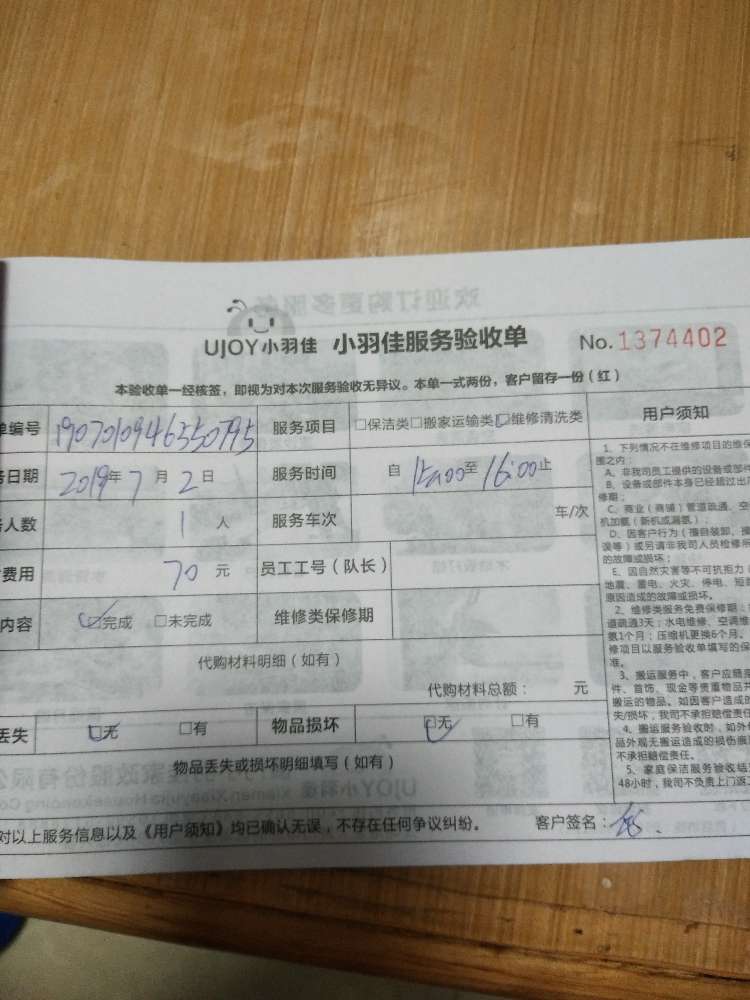 UJOY小羽佳 小羽佳服务验收单 No.1374402
本验收单一经核签，即视为对本次服务验收无异议。本单一式两份，客户留存一份（红）
单编号 服务项目 □保洁类□搬家运输类□维修清洗类 用户须知
日期 2019年7月2日 服务时间 自15:00至16:00止
人数 1人 服务车次 车/次
费用 70元 员工工号（队长）
内容 □完成 □未完成 维修类保修期
代购材料明细（如有）
代购材料总额： 元
丢失 □无 □有 物品损坏 □无 □有
物品丢失或损坏明细填写（如有）
对以上服务信息以及《用户须知》均已确认无误，不存在任何争议纠纷。 客户签名：
1、下列情况不在维修项目的维保
围之内：
A、非我司员工提供的设备或部件
B、设备或部件本身已经超过出厂
修期；
C、商业（商铺）管道疏通、空
机加氨（新机或漏氨）；
D、因客户行为（擅自装卸、操
误等）或另请非我司人员检修所
的故障或损坏；
E、因自然灾害等不可抗力
地震、雷电、火灾、停电、短
原因造成的故障或损坏。
2、维修类服务免费保修期：
道疏通3天；水电维修、空调维
氨1个月；压缩机更换6个月。
修项目以服务验收单填写的保
准。
3、搬运服务中，客户应随身
件、首饰、现金等贵重物品
搬运的物品。如因客户造成的
失/损坏，我司不承担赔偿责任
4、搬运服务验收时，如外
品外观无搬运造成的损伤痕
不承担赔偿责任。
5、家庭保洁服务验收结
48小时，我司不负责上门返工